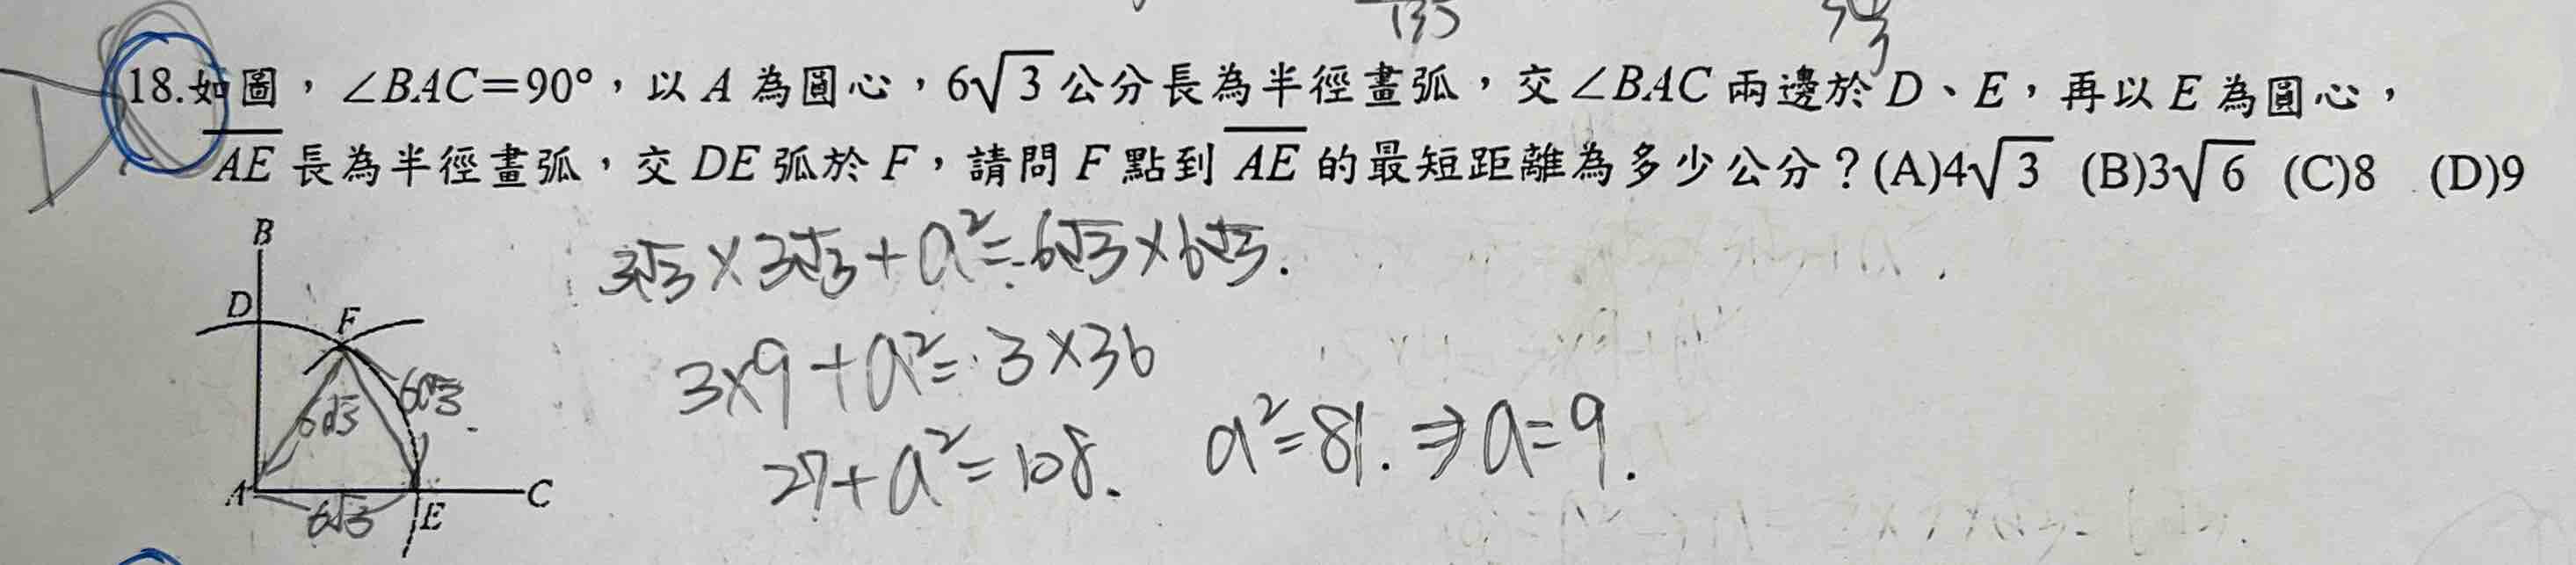 135
18.如圖，∠BAC=90°，以 A 為圓心，6√3 公分長為半徑畫弧，交∠BAC 兩邊於 D、E，再以 E 為圓心，
AE 長為半徑畫弧，交 DE 弧於 F，請問 F 點到 AE 的最短距離為多少公分？(A)4√3 (B)3√6 (C)8 (D)9
B
3√3×3√3+a²=6√3×6√3.
D
F
3×9+a²=3×36
6√3
6√3
a²=81.⇒a=9.
27+a²=108.
A
C
6√3
E